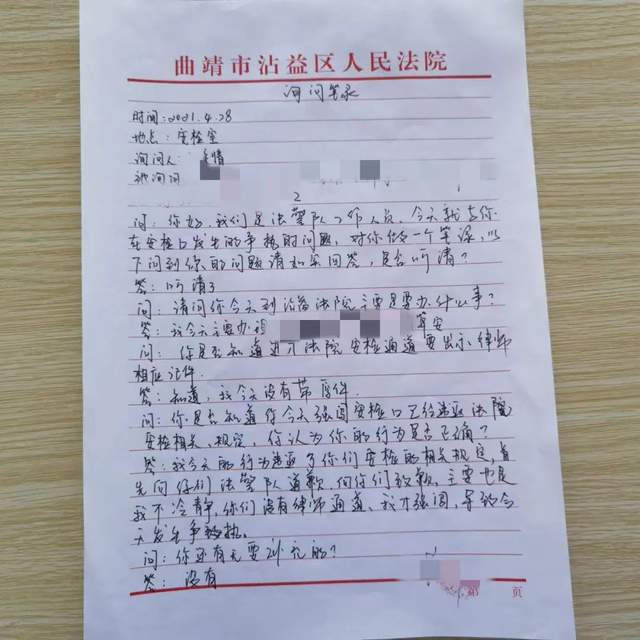 曲靖市沾益区人民法院
询问笔录
时间:2021.4.28
地点:安检室
询问人
被询问
2
问:你好,我们是法警队工作人员,今天就与你
在安检口发生的争执的问题,对你做一个笔录,以
下问到你的问题请如实回答,是否听清?
答:听清了
问:请问你今天到沾益法院主要是要办什么事?
答:我今天主要办理
问:你是否知道进才法院安检通道要出示律师
相应证件.
答:知道,我今天没有带原件.
问:你是否知道你今天强闯安检口已经违反法院
安检相关规定,你认为你的行为是否正确?
答:我今天的行为违反了你们安检的相关规定,首
先向你们法警队道歉,向你们致歉,主要也是
我不冷静,你们没有律师通道,我才强闯,导致今
天发生争执.
问:你还有无要补充的?
答:没有
第 页